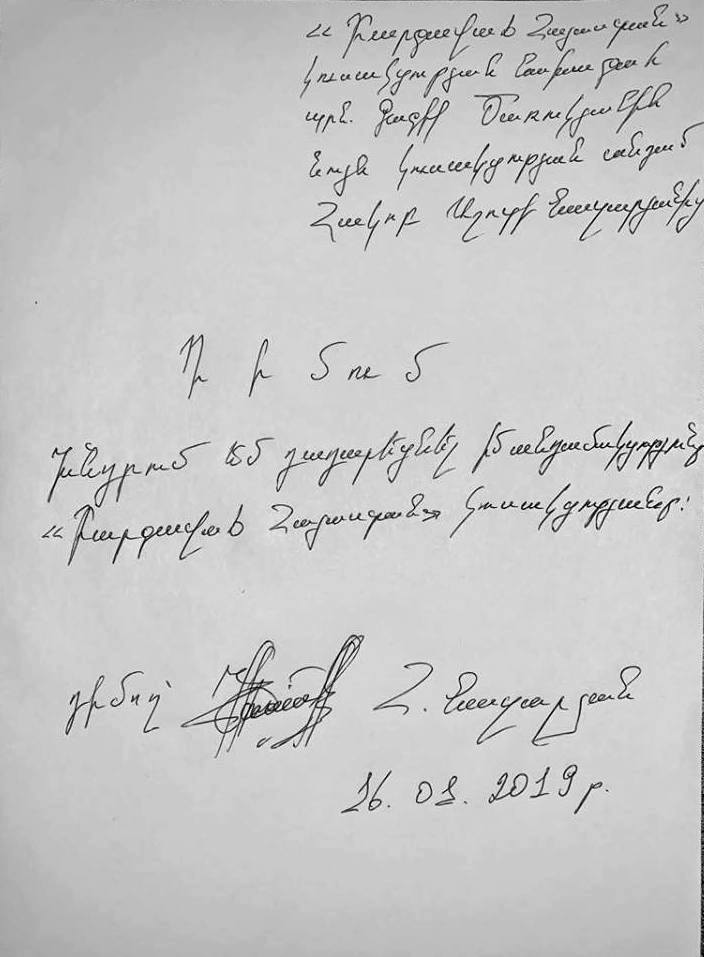 «Բարգավաճ Հայաստան»
կուսակցության նախագահ
պրն. Գագիկ Ծառուկյանին
նույն կուսակցության անդամ
Հակոբ Նազարյանից
Դ ի մ ու մ
Խնդրում եմ դադարեցնել իմ անդամակցությունը
«Բարգավաճ Հայաստան» կուսակցությանը:
դիմող՝ Հ. Նազարյան
26. 03. 2019թ.